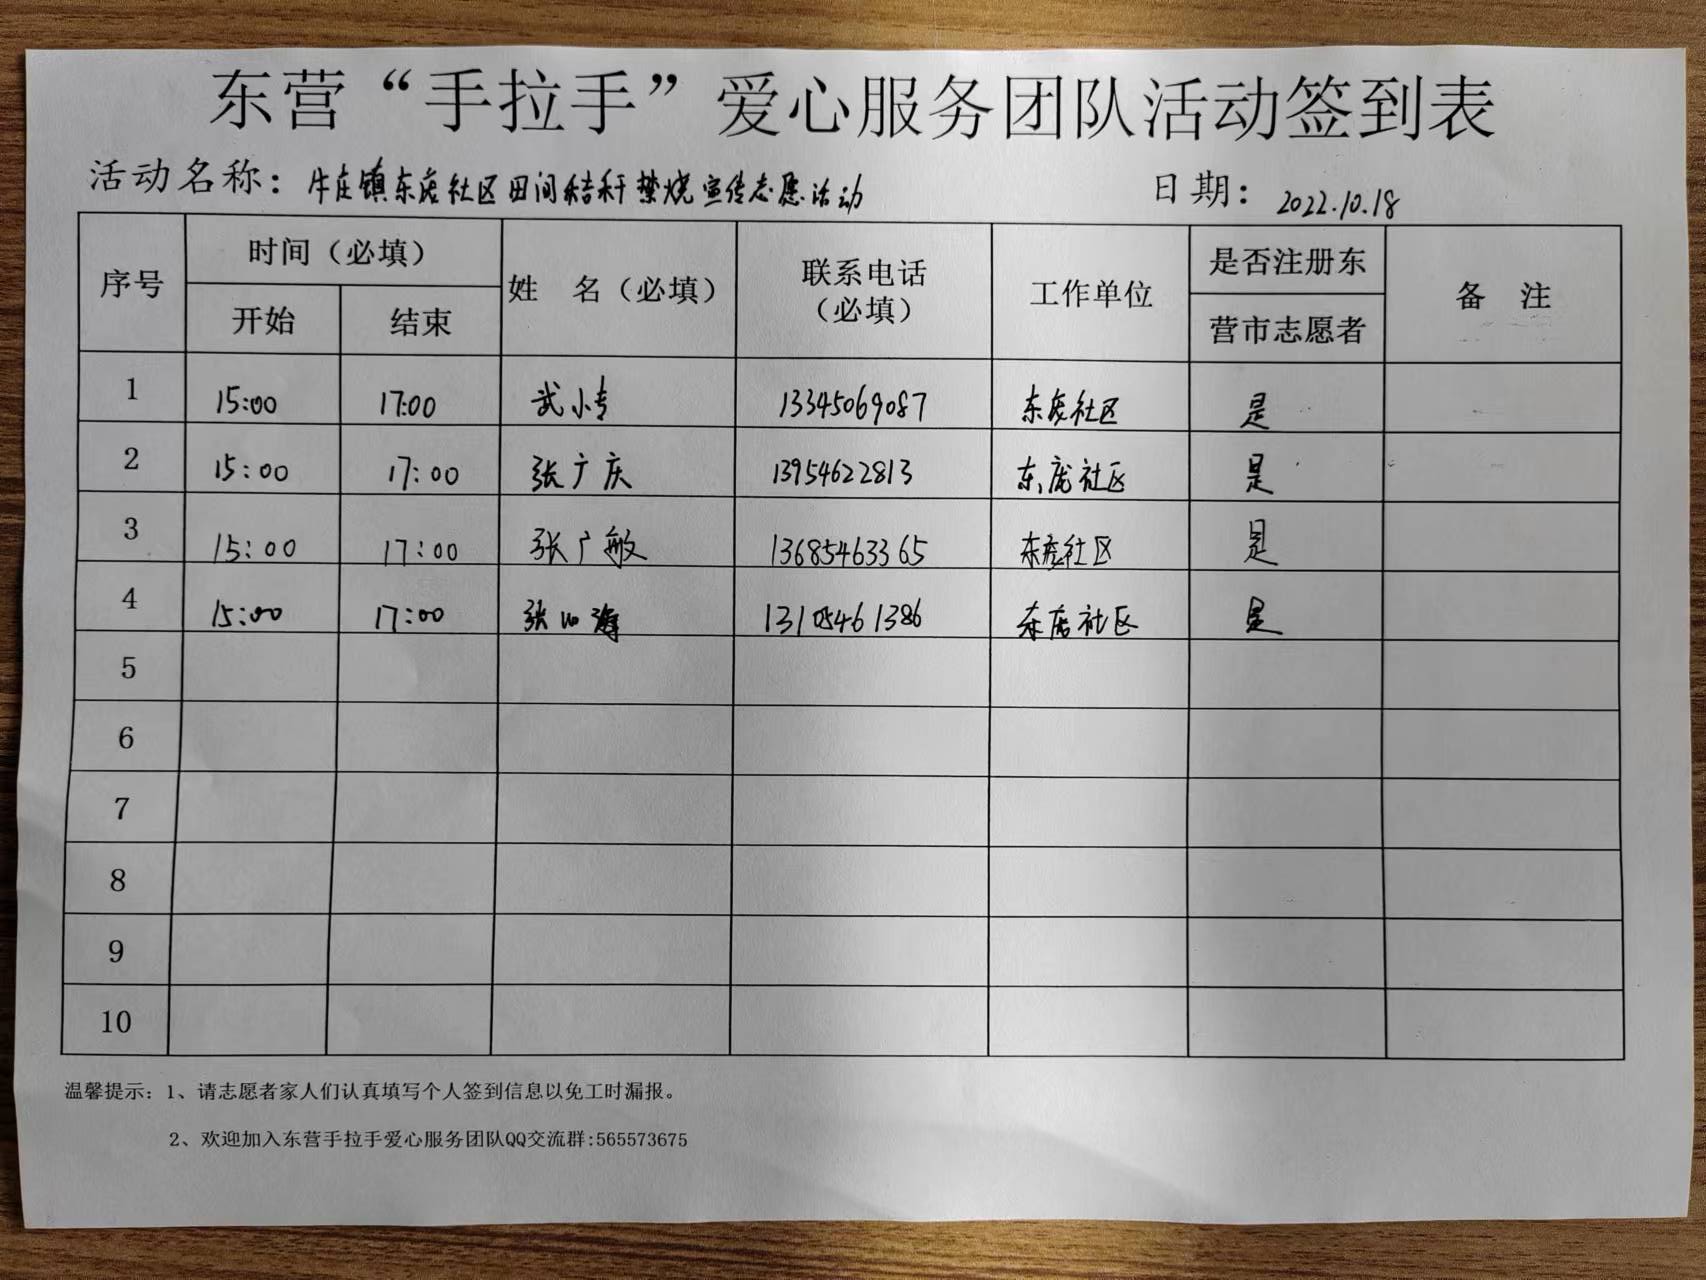 东营“手拉手”爱心服务团队活动签到表
活动名称：牛庄镇东庞社区田间秸秆禁烧宣传志愿活动 日期：2022.10.18
序号 时间（必填） 姓 名（必填） 联系电话（必填） 工作单位 是否注册东营市志愿者 备 注
开始 结束
1 15:00 17:00 武小专 13345069087 东庞社区 是
2 15:00 17:00 张广庆 13954622813 东庞社区 是
3 15:00 17:00 张广敏 13685463365 东庞社区 是
4 15:00 17:00 张 海 13105461386 东庞社区 是
5
6
7
8
9
10
温馨提示：1、请志愿者家人们认真填写个人签到信息以免工时漏报。
2、欢迎加入东营手拉手爱心服务团队QQ交流群:565573675